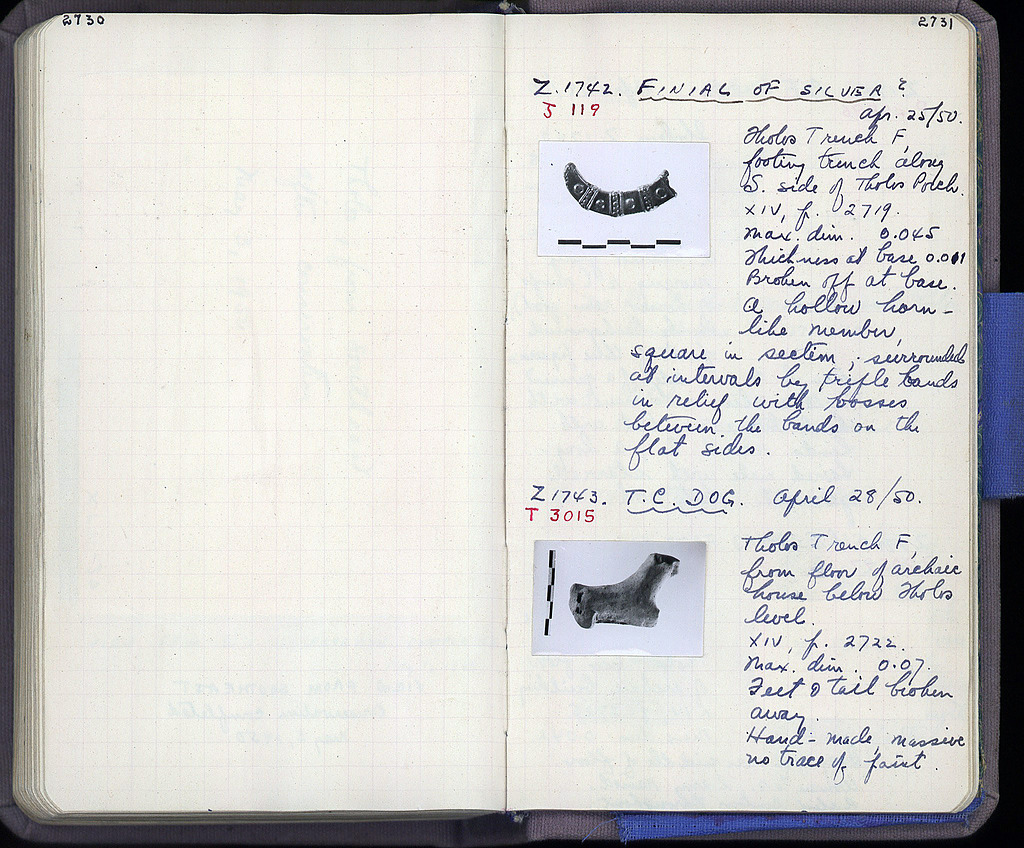 2730
2731
Z.1742. FINIAL OF SILVER?
J 119
Apr. 25/50.
Tholos Trench F,
footing trench along
S. side of Tholos Porch.
XIV, p. 2719.
Max. dim. 0.045
Thickness at base 0.011
Broken off at base.
A hollow horn-
like member,
square in section, surrounded
at intervals by triple bands
in relief with bosses
between the bands on the
flat sides.
Z 1743. T.C. DOG. April 28/50.
T 3015
Tholos Trench F,
from floor of archaic
house below Tholos
level.
XIV, p. 2722.
Max. dim. 0.07.
Feet & tail broken
away.
Hand-made, massive
no trace of paint.